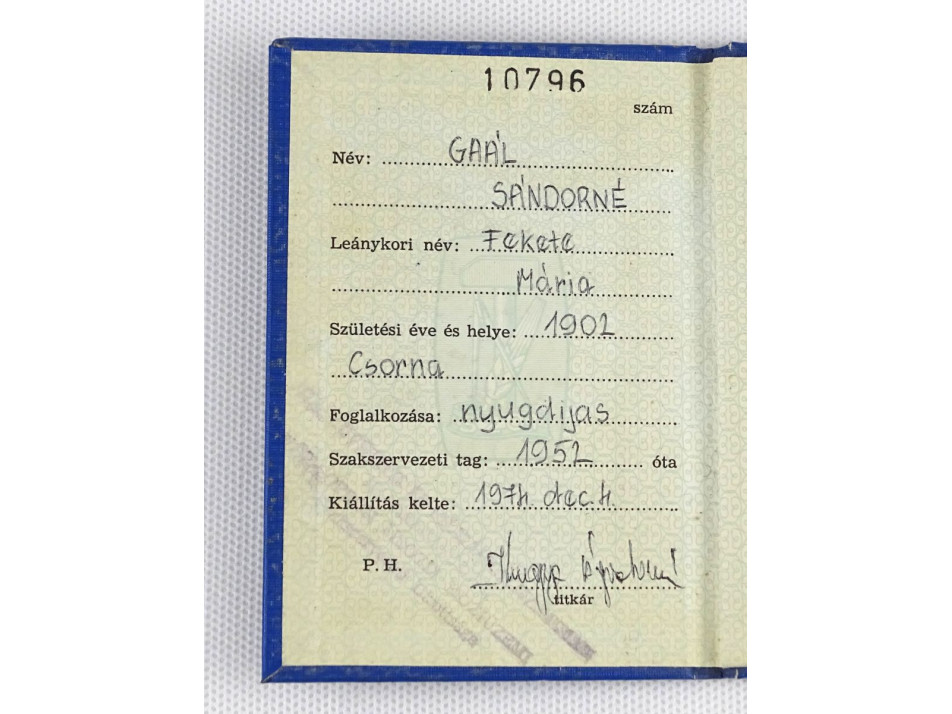 10796
szám
Név: GAÁL
SÁNDORNÉ
Leánykori név: Fekete
Mária
Születési éve és helye: 1902
Csorna
Foglalkozása: nyugdijas
Szakszervezeti tag: 1952 óta
Kiállítás kelte: 1974. dec. 4.
P. H.
titkár